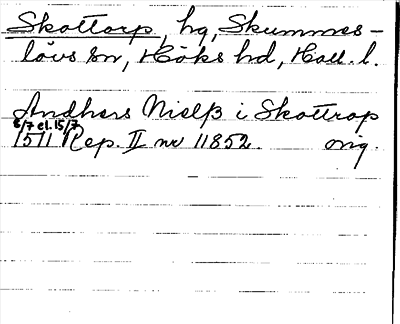 Skottorp, hg, Skummes-
lövs sn, Höks hd, Hall. l.
Andhers Nielß i Skottrop
8/7 el. 15/7
1511 Rep. II nr 11852. orig.